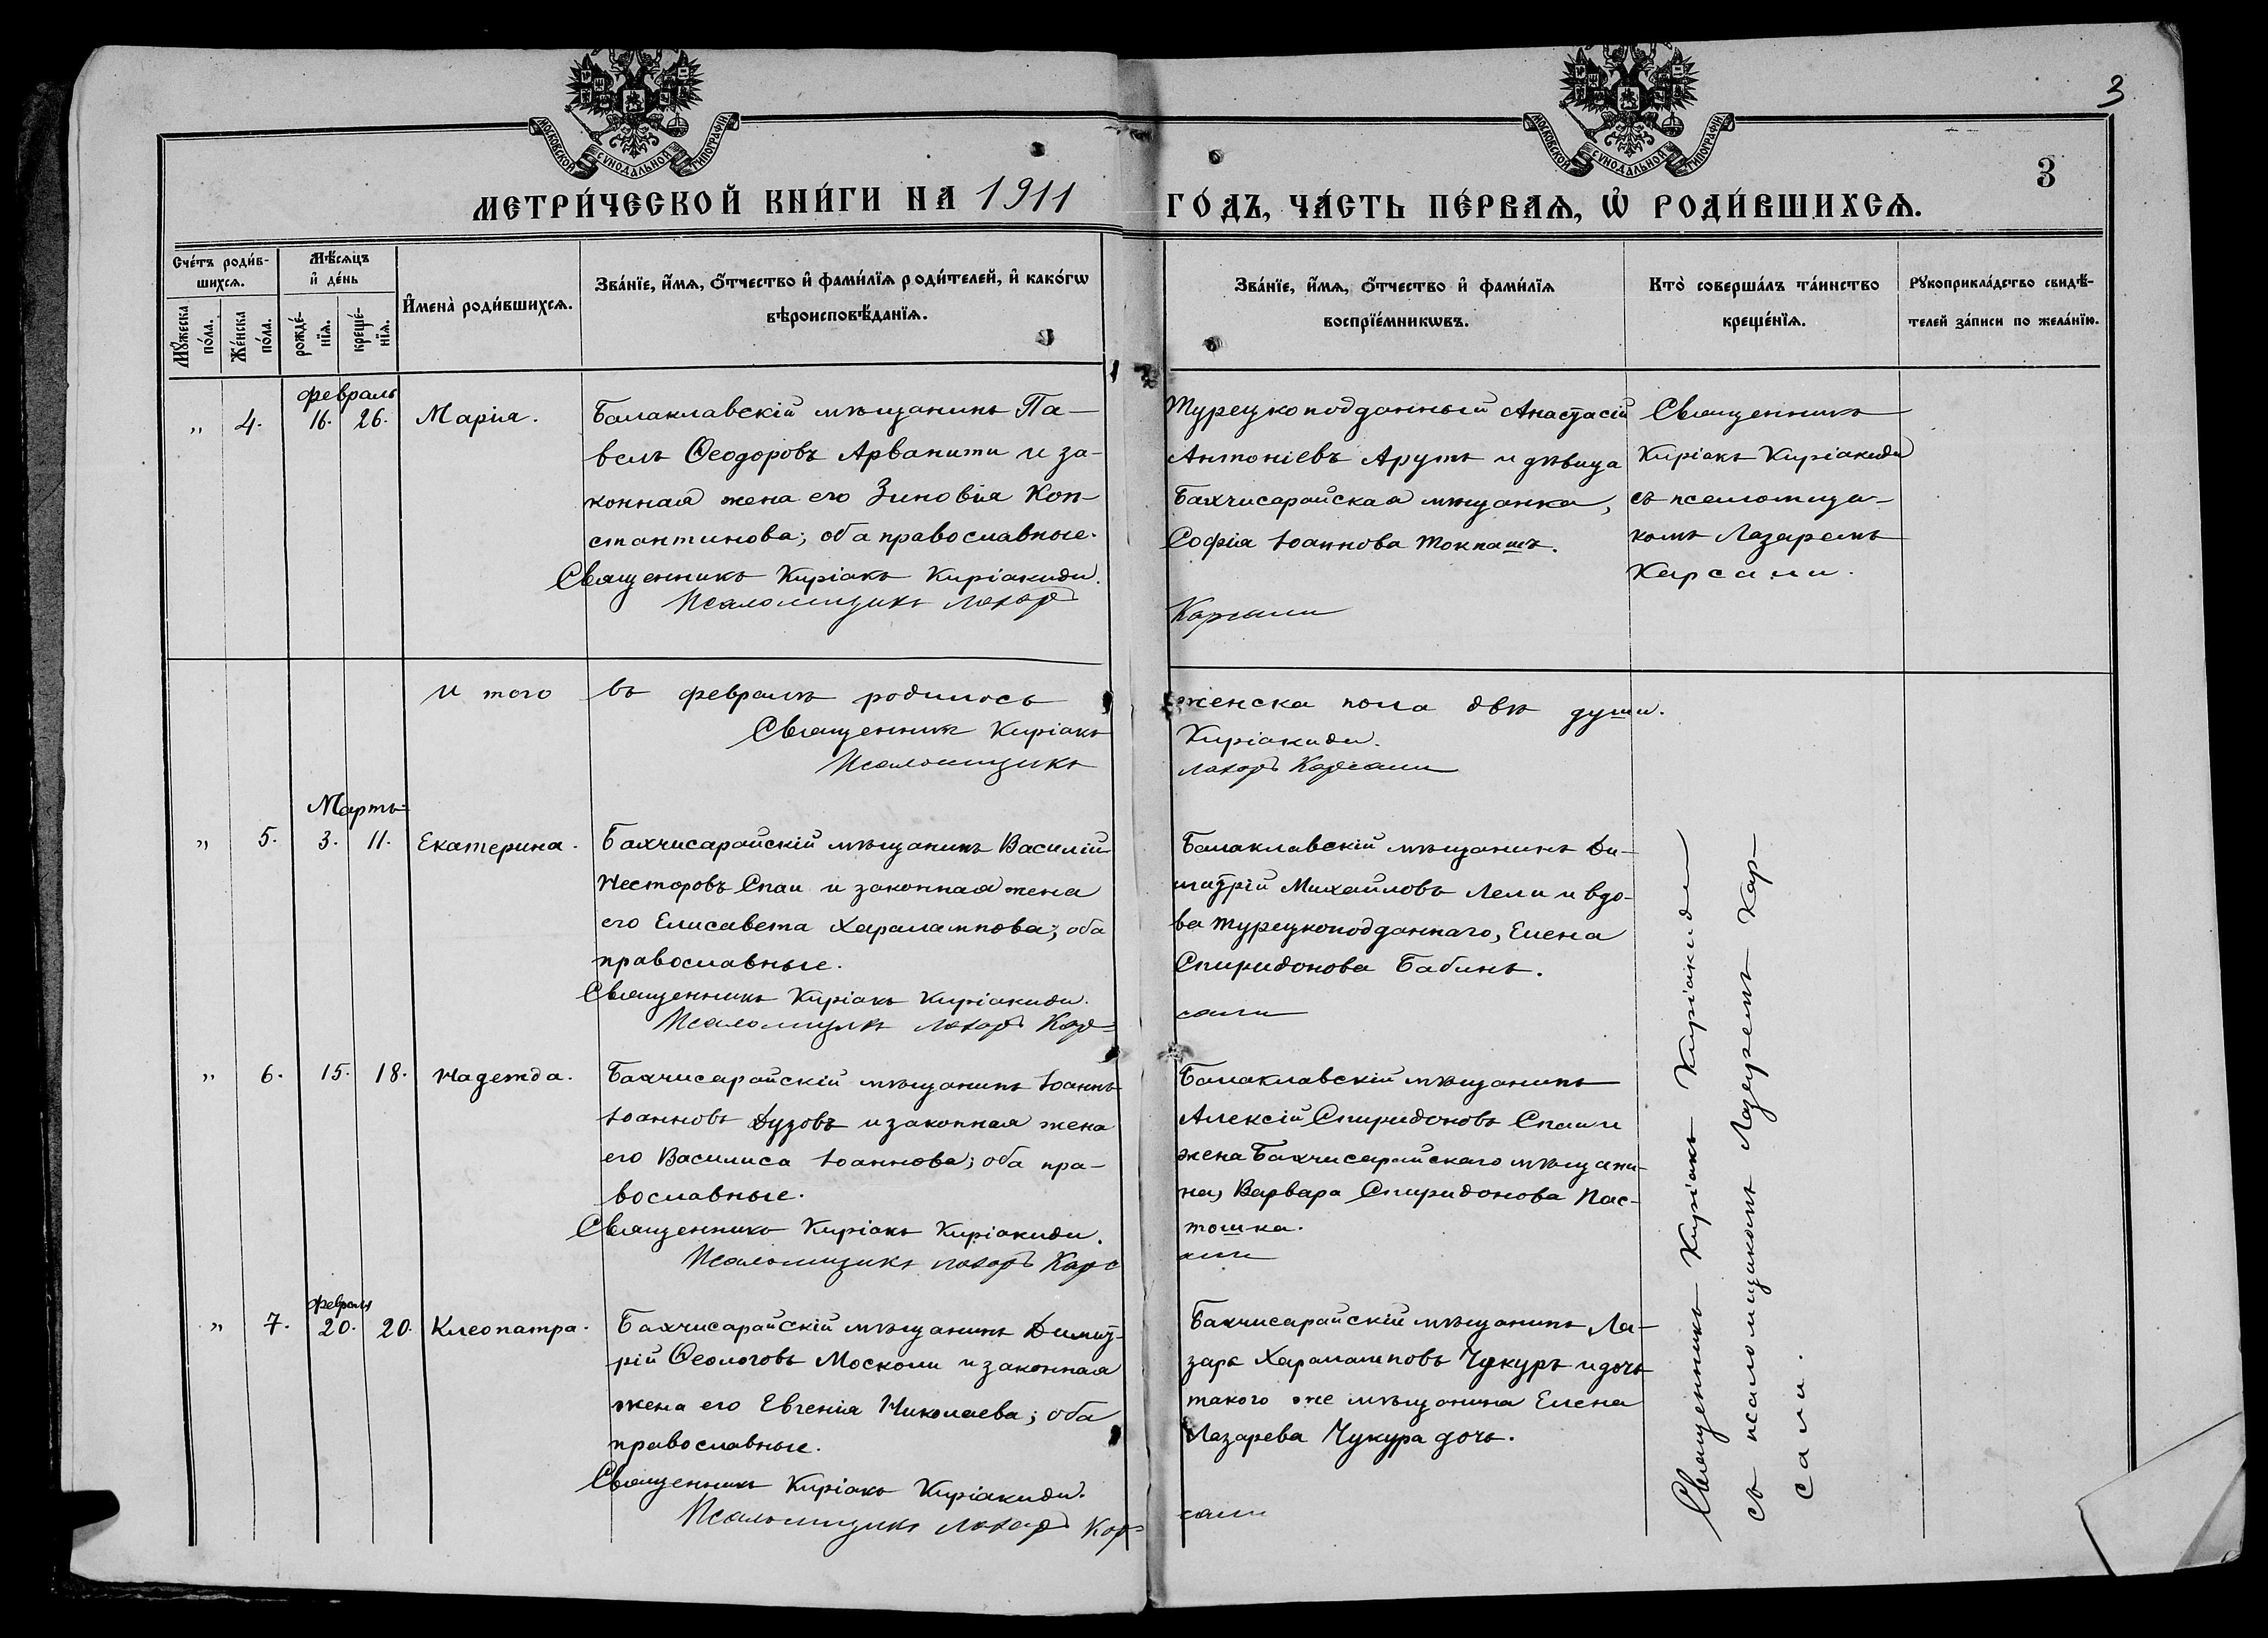 3
МОСКОВСКОЙ СѴНОДАЛЬНОЙ ТИПОГРАФІИ
МОСКОВСКОЙ СѴНОДАЛЬНОЙ ТИПОГРАФІИ
3
МЕТРИ́ЧЕСКОЙ КНИ́ГИ НА 1911 ГО́ДЪ, ЧА́СТЬ ПЕ́РВАѦ, Ѽ РОДИ́ВШИХСѦ.
Сче́тъ роди́в-
шихсѧ.
Мꙋ́жеска по́ла.
Же́нска по́ла.
Мѣ́сѧцъ
и҆ де́нь
рожде́-
нїѧ.
креще́-
нїѧ.
И҆мена̀ роди́вшихсѧ.
Зва́нїе, и҆́мѧ, ѻ҆́тчество и҆ фами́лїѧ роди́телей, и҆ како́гѡ
вѣроисповѣ́данїѧ.
Зва́нїе, и҆́мѧ, ѻ҆́тчество и҆ фами́лїѧ
воспрїе́мникѡвъ.
Кто̀ соверша́лъ та́инство
креще́нїѧ.
Рꙋкоприкла́дство свидѣ́-
телей за́писи по жела́нїю.
февраль
„ 4. 16. 26. Марія.
Балаклавскій мѣщанинъ Па-
велъ Ѳеодоровъ Арванити и за-
конная жена его Зиновія Кон-
стантинова; оба православные.
Священникъ Киріакъ Киріакиди.
Псаломщикъ Лазарь
Турецкоподданный Анастасій
Антоніевъ Арутъ и дѣвица
Бахчисарайская мѣщанка,
Софія Іоаннова Токпашъ.
Карсали
Священникъ
Киріакъ Киріакиди
съ псаломщи-
комъ Лазаремъ
Карсали.
И того въ февралѣ родилось женска пола двѣ души.
Священник Киріакъ Киріакиди.
Псаломщикъ Лазарь Карсали
Мартъ
„ 5. 3. 11. Екатерина.
Бахчисарайскій мѣщанинъ Василій
Несторовъ Спаи и законная жена
его Елисавета Харалампова; оба
православные.
Священникъ Киріакъ Киріакиди.
Псаломщикъ Лазарь Кар=
Балаклавскій мѣщанинъ Ди-
митрій Михайловъ Лели и вдо-
ва турецкоподданнаго, Елена
Спиридонова Бабинъ.
сали
„ 6. 15. 18. Надежда.
Бахчисарайскій мѣщанинъ Іоаннъ
Іоанновъ Дузовъ и законная жена
его Василиса Іоаннова; оба пра-
вославные.
Священникъ Киріакъ Киріакиди.
Псаломщикъ Лазарь Карс
Балаклавскій мѣщанинъ
Алексій Спиридоновъ Спаи и
жена Бахчисарайскаго мѣщани-
на, Варвара Спиридонова Пас-
тошка.
али
февраля
„ 7. 20. 20. Клеопатра.
Бахчисарайскій мѣщанинъ Димит-
рій Ѳеологовъ Москоли и законная
жена его Евгенія Николаева; оба
православные.
Священникъ Киріакъ Киріакиди.
Псаломщикъ Лазарь Кар=
Бахчисарайскій мѣщанинъ Ла-
зарь Хараламповъ Чукуръ и дочь
такого же мѣщанина Елена
Лазарева Чукура дочь.
сали
Священникъ Киріакъ Киріакиди
съ псаломщикомъ Лазаремъ Кар-
сали.